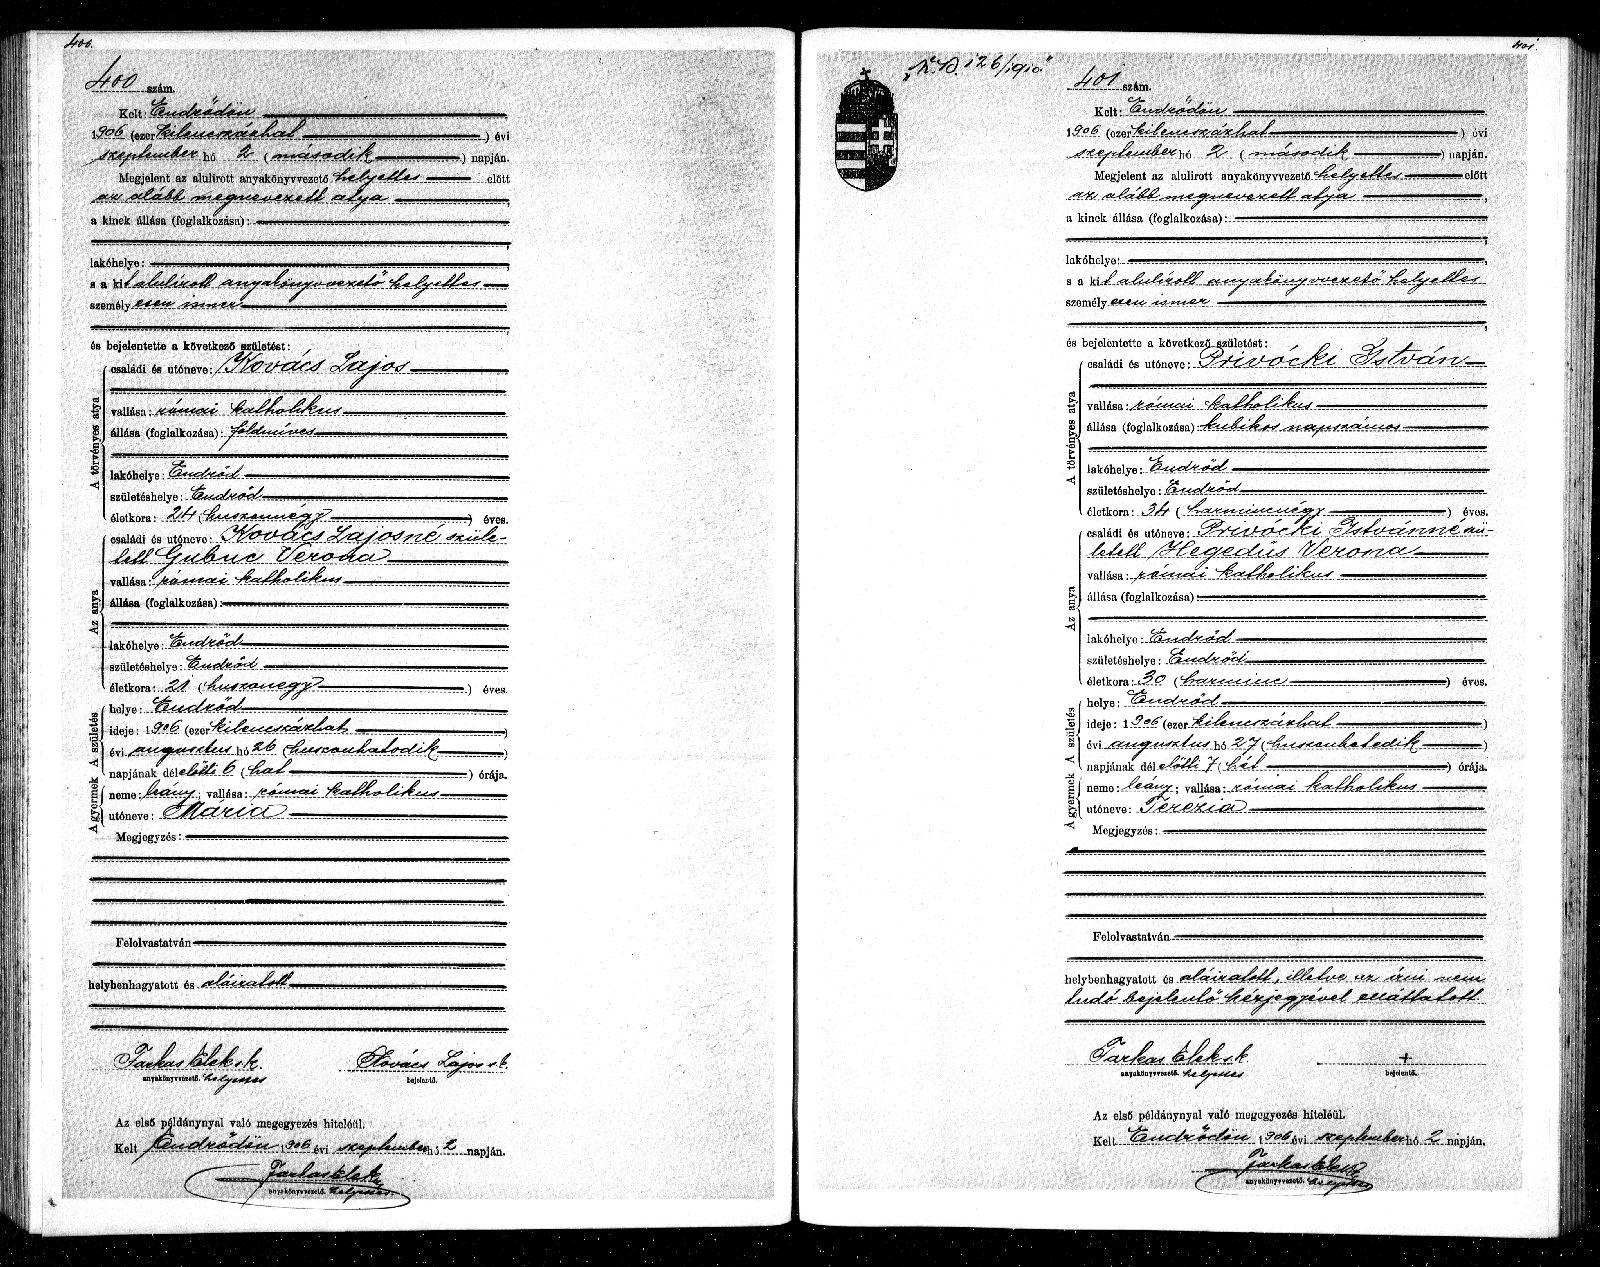 400.
400 szám.
Kelt: Endrődön
1906 (ezer kilenczszázhat) évi
szeptember hó 2 (második) napján.
Megjelent az alulirott anyakönyvvezető helyettes előtt
az alább megnevezett atya,
a kinek állása (foglalkozása):
,
lakóhelye: ,
s a kit alulírott anyakönyvvezető helyettes
személyesen ismer
,
és bejelentette a következő születést:
A törvényes atya
családi és utóneve: Kovács Lajos
vallása: római katholikus
állása (foglalkozása): földmíves
lakóhelye: Endrőd
születéshelye: Endrőd
életkora: 24 (huszonnégy) éves.
Az anya
családi és utóneve: Kovács Lajosné szüle-
tett Gubuc Verona
vallása: római katholikus
állása (foglalkozása):
lakóhelye: Endrőd
születéshelye: Endrőd
életkora: 21 (huszonegy) éves.
A születés
helye: Endrőd
ideje: 1906 (ezer kilenczszázhat)
évi augusztus hó 26 (huszonhatodik)
napjának délelőtti 6 (hat) órája.
A gyermek
neme: leány; vallása: római katholikus
utóneve: Mária
Megjegyzés:
Felolvastatván
helybenhagyatott és aláiratott
Farkas Elek s.k. Kovács Lajos s.k.
anyakönyvvezető. helyettes bejelentő.
Az első példánynyal való megegyezés hiteléül.
Kelt Endrődön 1906 évi szeptember hó 2 napján.
Farkas Elek
anyakönyvvezető. helyettes
401.
„K.B. 126/1910."
401 szám.
Kelt: Endrődön
1906 (ezer kilenczszázhat) évi
szeptember hó 2 (második) napján.
Megjelent az alulirott anyakönyvvezető helyettes előtt
az alább megnevezett atya,
a kinek állása (foglalkozása):
,
lakóhelye: ,
s a kit alulírott anyakönyvvezető helyettes
személyesen ismer
,
és bejelentette a következő születést:
A törvényes atya
családi és utóneve: Privócki István
vallása: római katholikus
állása (foglalkozása) kubikos napszámos
lakóhelye: Endrőd
születéshelye: Endrőd
életkora: 34 (harmincnégy) éves.
Az anya
családi és utóneve: Privócki Istvánné szü-
letett Hegedüs Verona
vallása: római katholikus
állása (foglalkozása):
lakóhelye: Endrőd
születéshelye: Endrőd
életkora: 30 (harminc) éves.
A születés
helye: Endrőd
ideje: 1906 (ezer kilenczszázhat)
évi augusztus hó 27 (huszonhetedik)
napjának délelőtti 7 (hét) órája.
A gyermek
neme: leány; vallása: római katholikus
utóneve: Terézia
Megjegyzés:
Felolvastatván
helybenhagyatott és aláiratott, illetve az írni nem
tudó bejelentő kézjegyével elláttatott
Farkas Elek s.k. +
anyakönyvvezető. helyettes bejelentő.
Az első példánynyal való megegyezés hiteléül.
Kelt Endrődön 1906 évi szeptember hó 2 napján.
Farkas Elek
anyakönyvvezető. helyettes